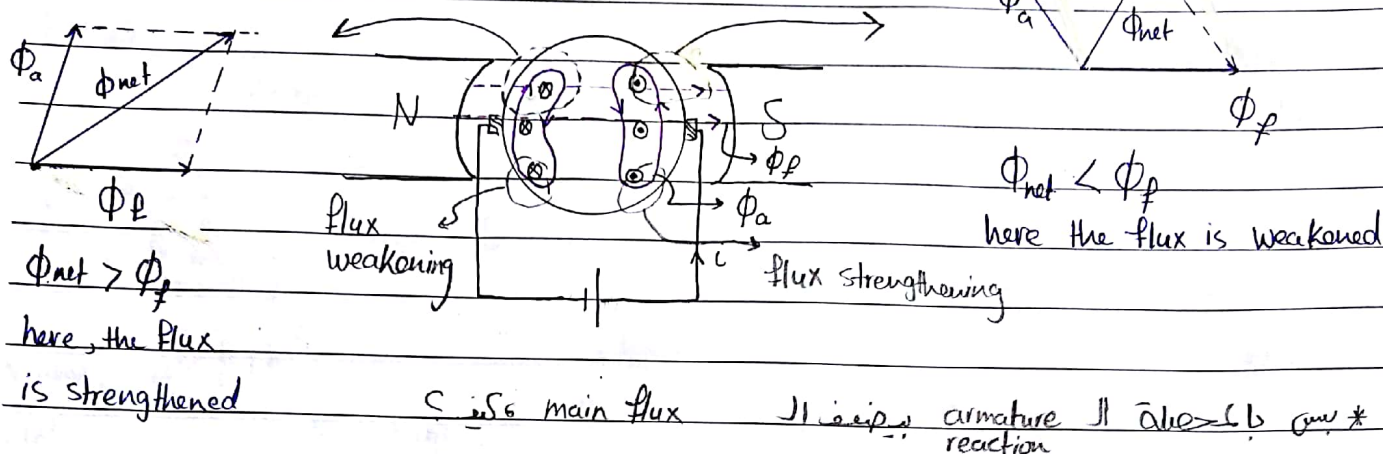 Φa
Φnet
Φf
Φnet > Φf
here, the flux
is strengthened
N
S
Φf
Φa
flux
weakening
i
flux strengthening
Φa
Φnet
Φf
Φnet < Φf
here the flux is weakened
* بس بالمحصلة ال armature reaction بيضعف ال main flux